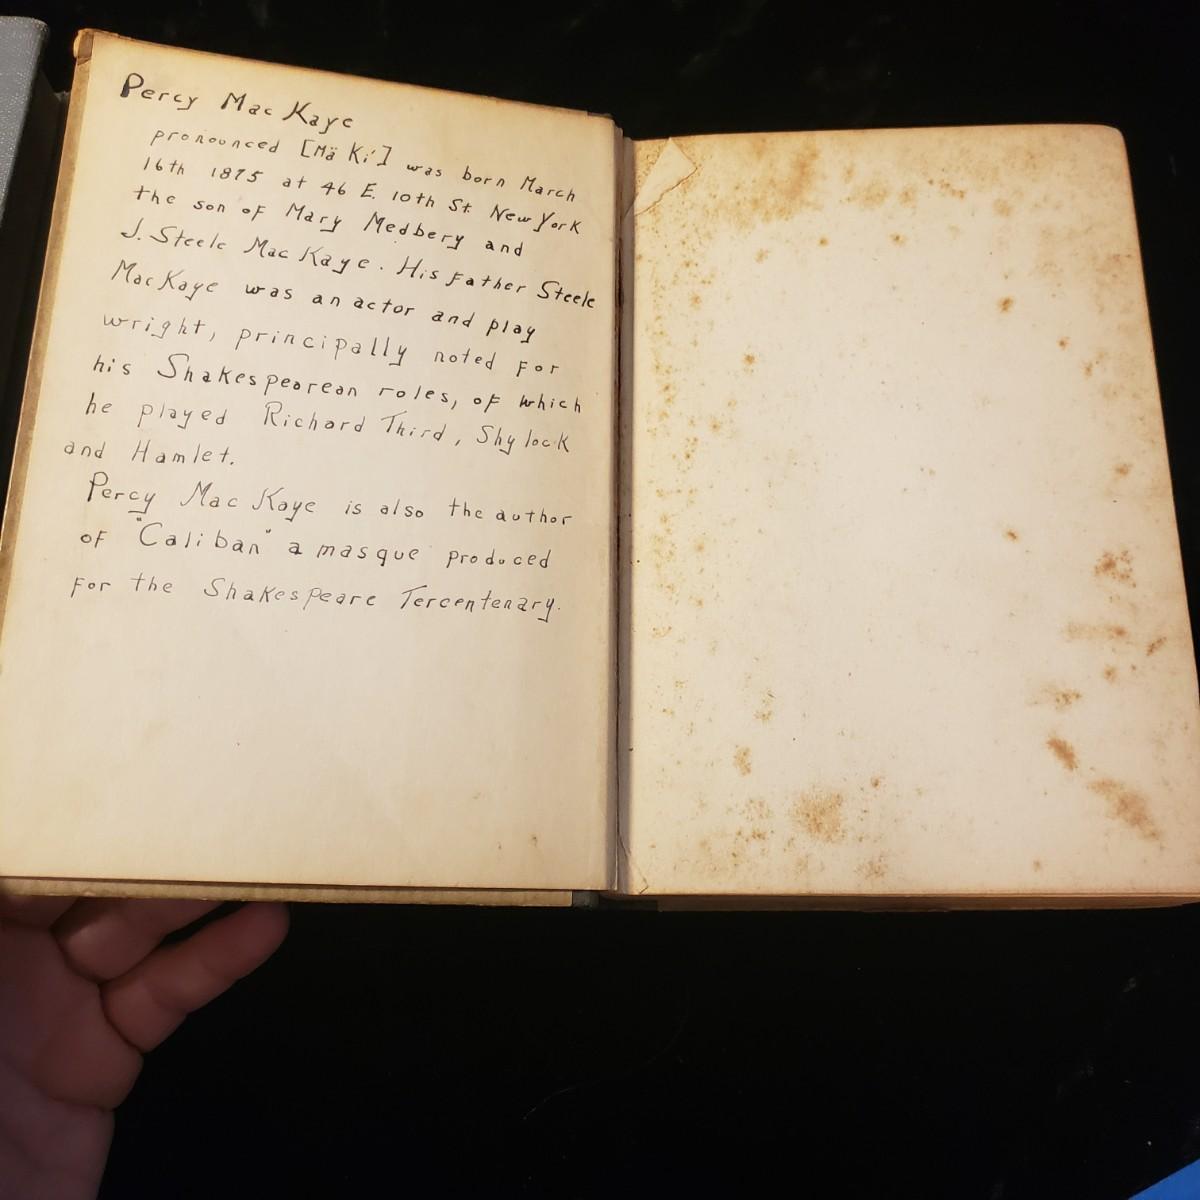 Percy Mac Kaye
pronounced [Mä Ki'] was born March
16th 1875 at 46 E. 10th St. New York
the son of Mary Medbery and
J. Steele Mac Kaye. His father Steele
Mac Kaye was an actor and play
wright, principally noted for
his Shakespearean roles, of which
he played Richard Third, Shylock
and Hamlet.
Percy Mac Kaye is also the author
of "Caliban" a masque produced
for the Shakespeare Tercentenary.